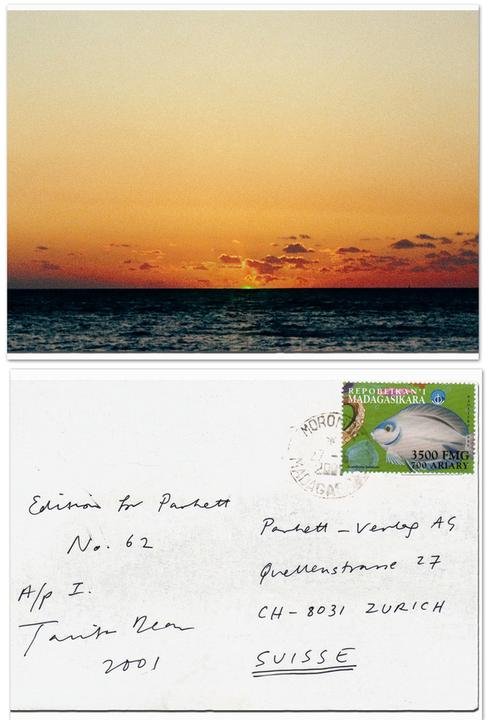 REPOBLIKAN'I
MADAGASIKARA
3500 FMG
700 ARIARY
MORON
27 -
MADAGAS
Edition for Parkett
No. 62
A/p I.
Tacita Dean
2001
Parkett - Verlag AG
Quellenstrasse 27
CH - 8031 ZURICH
SUISSE